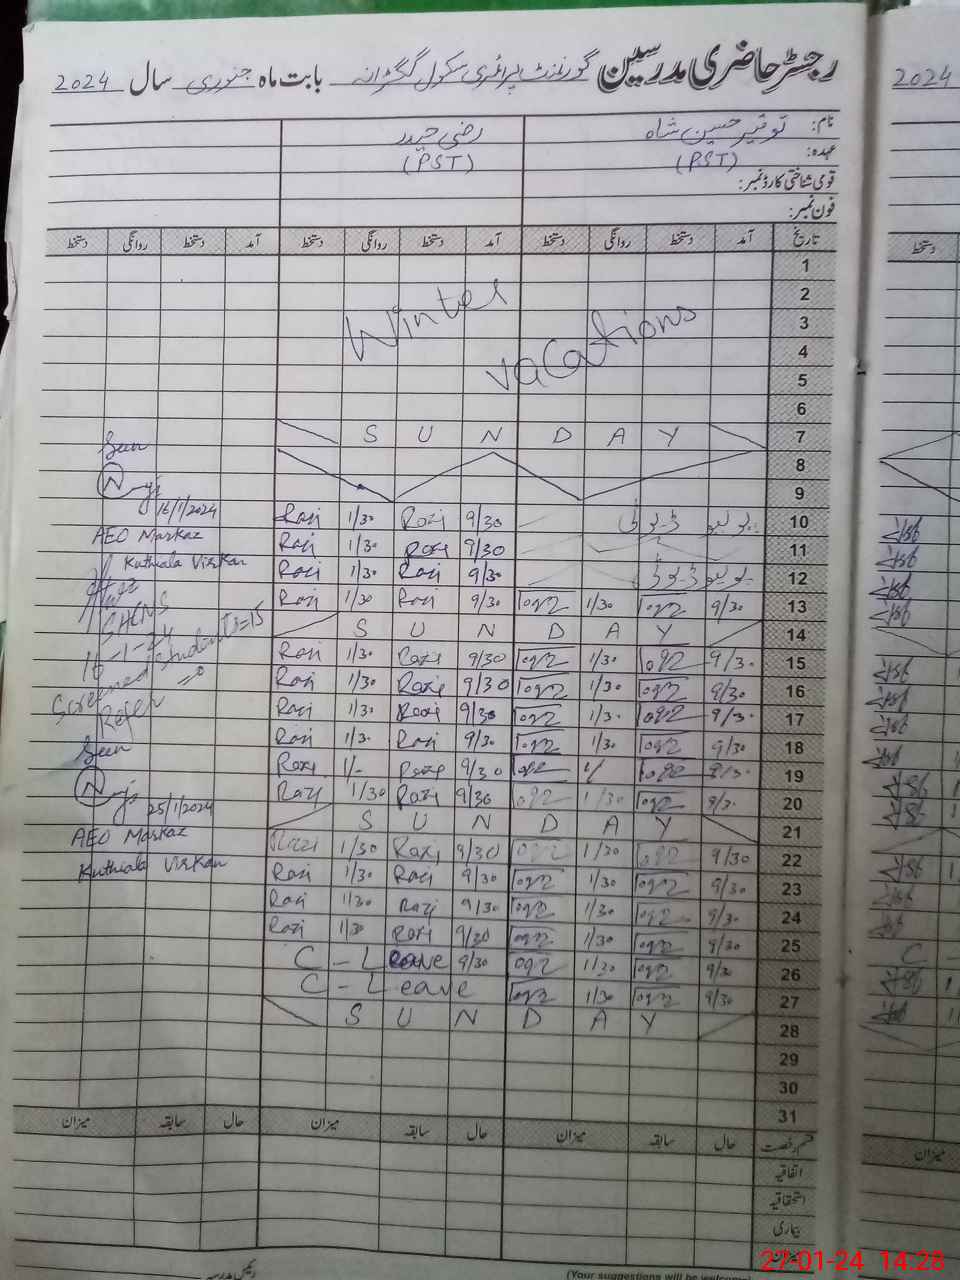 رجسٹر حاضری مدرسین گورنمنٹ پرائمری سکول بابت ماہ جنوری سال 2024
نام: توقیر حسین شاہ رضی حیدر
عہدہ: (PST) (PST)
قومی شناختی کارڈ نمبر:
فون نمبر:
تاریخ آمد دستخط روانگی دستخط آمد دستخط روانگی دستخط آمد دستخط روانگی دستخط
1
2
Winter
3
vacations
4
5
6
7 S U N D A Y
8
Seen
9
16/1/2024
10 Razi 1/30 Razi 9/30 یو ڈیوٹی
AEO Markaz
11 Razi 1/30 Razi 9/30
Kuthiala Virkan
12 Razi 1/30 Razi 9/30 ڈیوٹی
13 Razi 1/30 Razi 9/30 1/30 9/30
SHCNS
14 S U N D A Y
16-1-24
Screened students=15
15 Razi 1/30 Razi 9/30 1/30 9/30
Refer = 0
16 Razi 1/30 Razi 9/30 1/30 9/30
17 Razi 1/30 Razi 9/30 1/30 9/30
18 Razi 1/30 Razi 9/30 1/30 9/30
Seen
19 Razi 1/- Razi 9/30 9/30
25/1/2024
20 Razi 1/30 Razi 9/30 1/30 9/30
AEO Markaz
21 S U N D A Y
Kuthiala Virkan
22 Razi 1/30 Razi 9/30 1/30 9/30
23 Razi 1/30 Razi 9/30 1/30 9/30
24 Razi 1/30 Razi 9/30 1/30 9/30
25 Razi 1/30 Razi 9/30 1/30 9/30
26 C-Leave 9/30 1/30 9/30
27 C-Leave 1/30 9/30
28 S U N D A Y
29
30
31
قسم رخصت حال سابقہ میزان حال سابقہ میزان حال سابقہ میزان
اتفاقیہ
استحقاقیہ
بیماری
میزان
رئیس مدرسہ
(Your suggestions will be welcome)
2024
دستخط
میزان
27-01-24 14:28